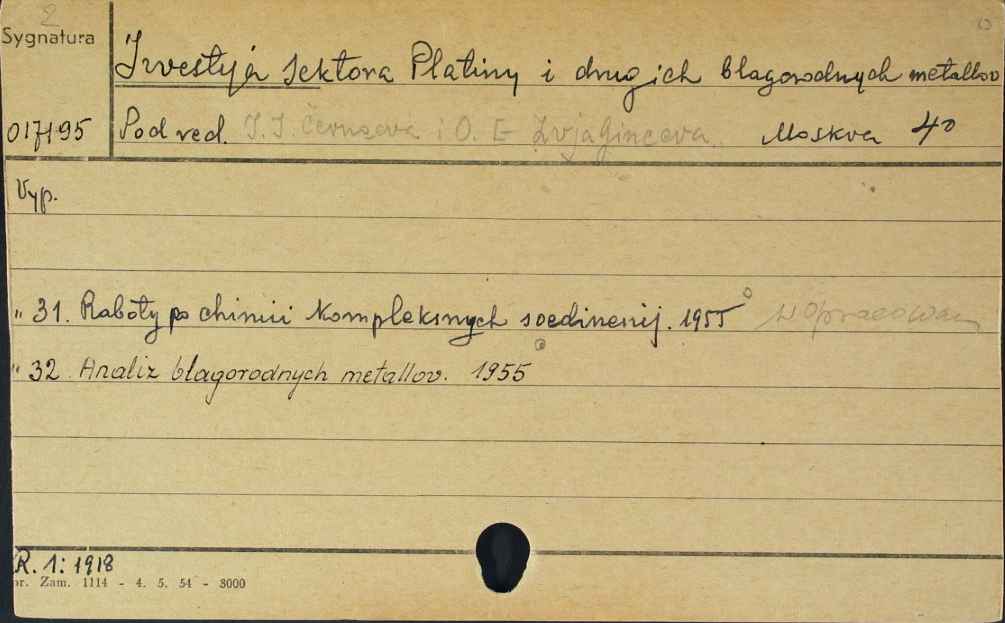 2
Sygnatura
Izvestyja Sektora Platiny i drugich blagorodnych metallov
017195 Pod red. I. I. Černjaeva i O. E. Zvjaginceva. Moskva 4°
Vyp.
" 31. Raboty po chimii Kompleksnych soedinenij. 1955 W opracowan
" 32. Analiz blagorodnych metallov. 1955
R. 1: 1918
nr. Zam. 1114 - 4. 5. 54 - 3000